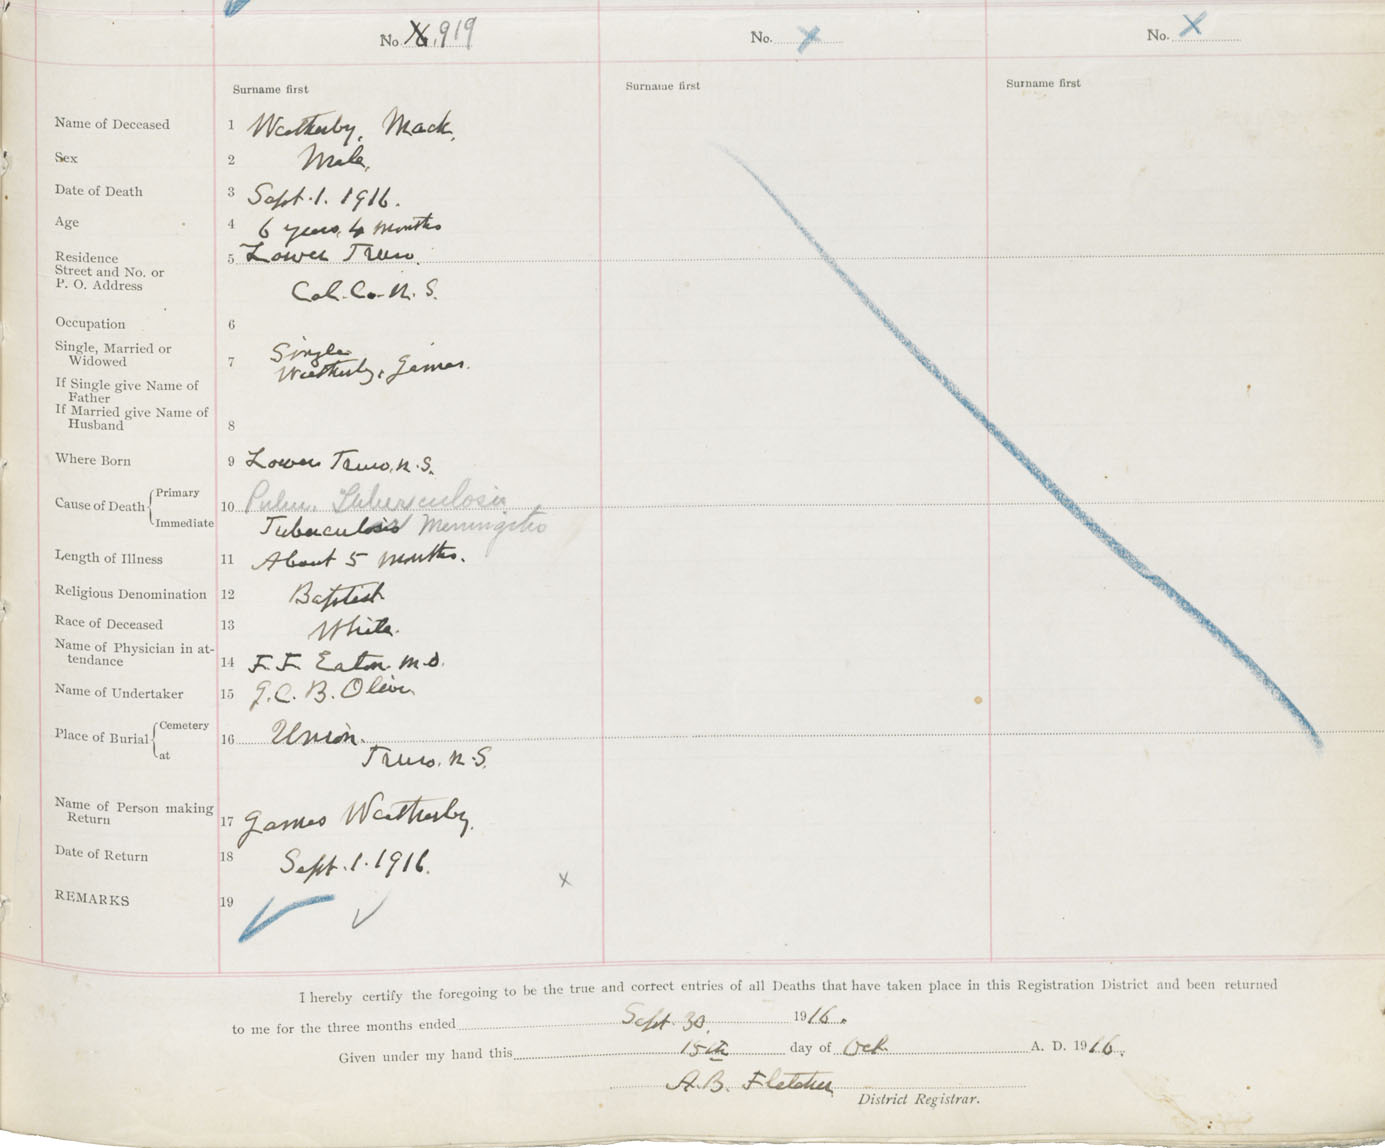 No. X6, 919
No. X
No. X
Surname first
Surname first
Surname first
Name of Deceased 1 Weatherby, Mack.
Sex 2 Male.
Date of Death 3 Sept. 1. 1916.
Age 4 6 years, 4 months
Residence 5 Lower Truro.
Street and No. or
P. O. Address Col. Co. N. S.
Occupation 6
Single, Married or
Widowed 7 Single
Weatherby, James.
If Single give Name of
Father
If Married give Name of
Husband 8
Where Born 9 Lower Truro, N. S.
Cause of Death Primary 10 Pulm. Tuberculosis
Immediate Tubercular Meningitis
Length of Illness 11 About 5 months.
Religious Denomination 12 Baptist
Race of Deceased 13 White.
Name of Physician in at-
tendance 14 F. F. Eaton. M.D.
Name of Undertaker 15 G. C. B. Oliver
Place of Burial Cemetery 16 Union.
at Truro. N. S.
Name of Person making
Return 17 James Weatherby.
Date of Return 18 Sept. 1. 1916.
x
REMARKS 19
I hereby certify the foregoing to be the true and correct entries of all Deaths that have taken place in this Registration District and been returned
to me for the three months ended Sept. 30. 1916.
Given under my hand this 15th day of Oct. A. D. 1916.
A. B. Fletcher
District Registrar.